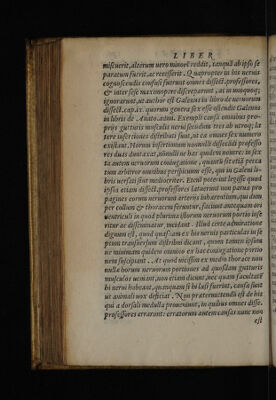 LIBER
miscuerit, alterum uero minorẽ reddit, tanquã ab ipso se
paratum fuerit, ac recesserit. Quapropter in his neruis
cognoscendis confusi fuerunt omnes dissect. professores,
& inter sese maximopere discreparunt, ac in unoquoq;
ignorarunt, ut author est Galenus in libro de neruorum
dissect. cap. ix. quorum genera sex esse ostendit Galenus
in libris de Anato. admi. Exempli causa omnibus pro-
prijs gutturis musculis nerui secundum tres ab utroq; la-
tere insertiones distributi sunt, ut ex omnes sex numero
existant. Horum insertionum nonnulli dissectiõis professo
res duas dunt axat, nõnulli ne has quidem nouere: in sex
ta autem neruorum coniugatione, quantũ sit etiã pecca
tum arbitror omnibus perspicuum esse, qui in Galeni li-
bris uersati sint mediocriter. Etenĩ potest intelligi quod
ipsos etiam dissect. professores latuerunt non paruæ pro
pagines eorum neruorum arterijs inhærentium, qui dum
per collum & thoracem feruntur, faciunt antequam ori
uentriculi in quod plurima illorum neruorum portio inse
ritur ac disseminatur, incidant. Illud certe admiratione
dignum est, quod quasdam ex his neruis particulas in se
ptum transuersum distribui dicant, quom tamen ipsum
ne minimam quidem omnino ex hac coniugatione portio
nem suscipiant. At quod nicissim ex medio thorace non
nulla horum neruorum portiones ad quosdam gutturis
musculos ueniant, non etiam dicunt, nec quam facultatẽ
hi nerui habeant, quanquam si hi læsi fuerint, causa sunt
ut animali uox deficiat. Non prætermittendi est de his
qui à dorsali medulla proueniunt, in quibus omnes disse.
professores errarunt: erratorum autem causas nunc non
est